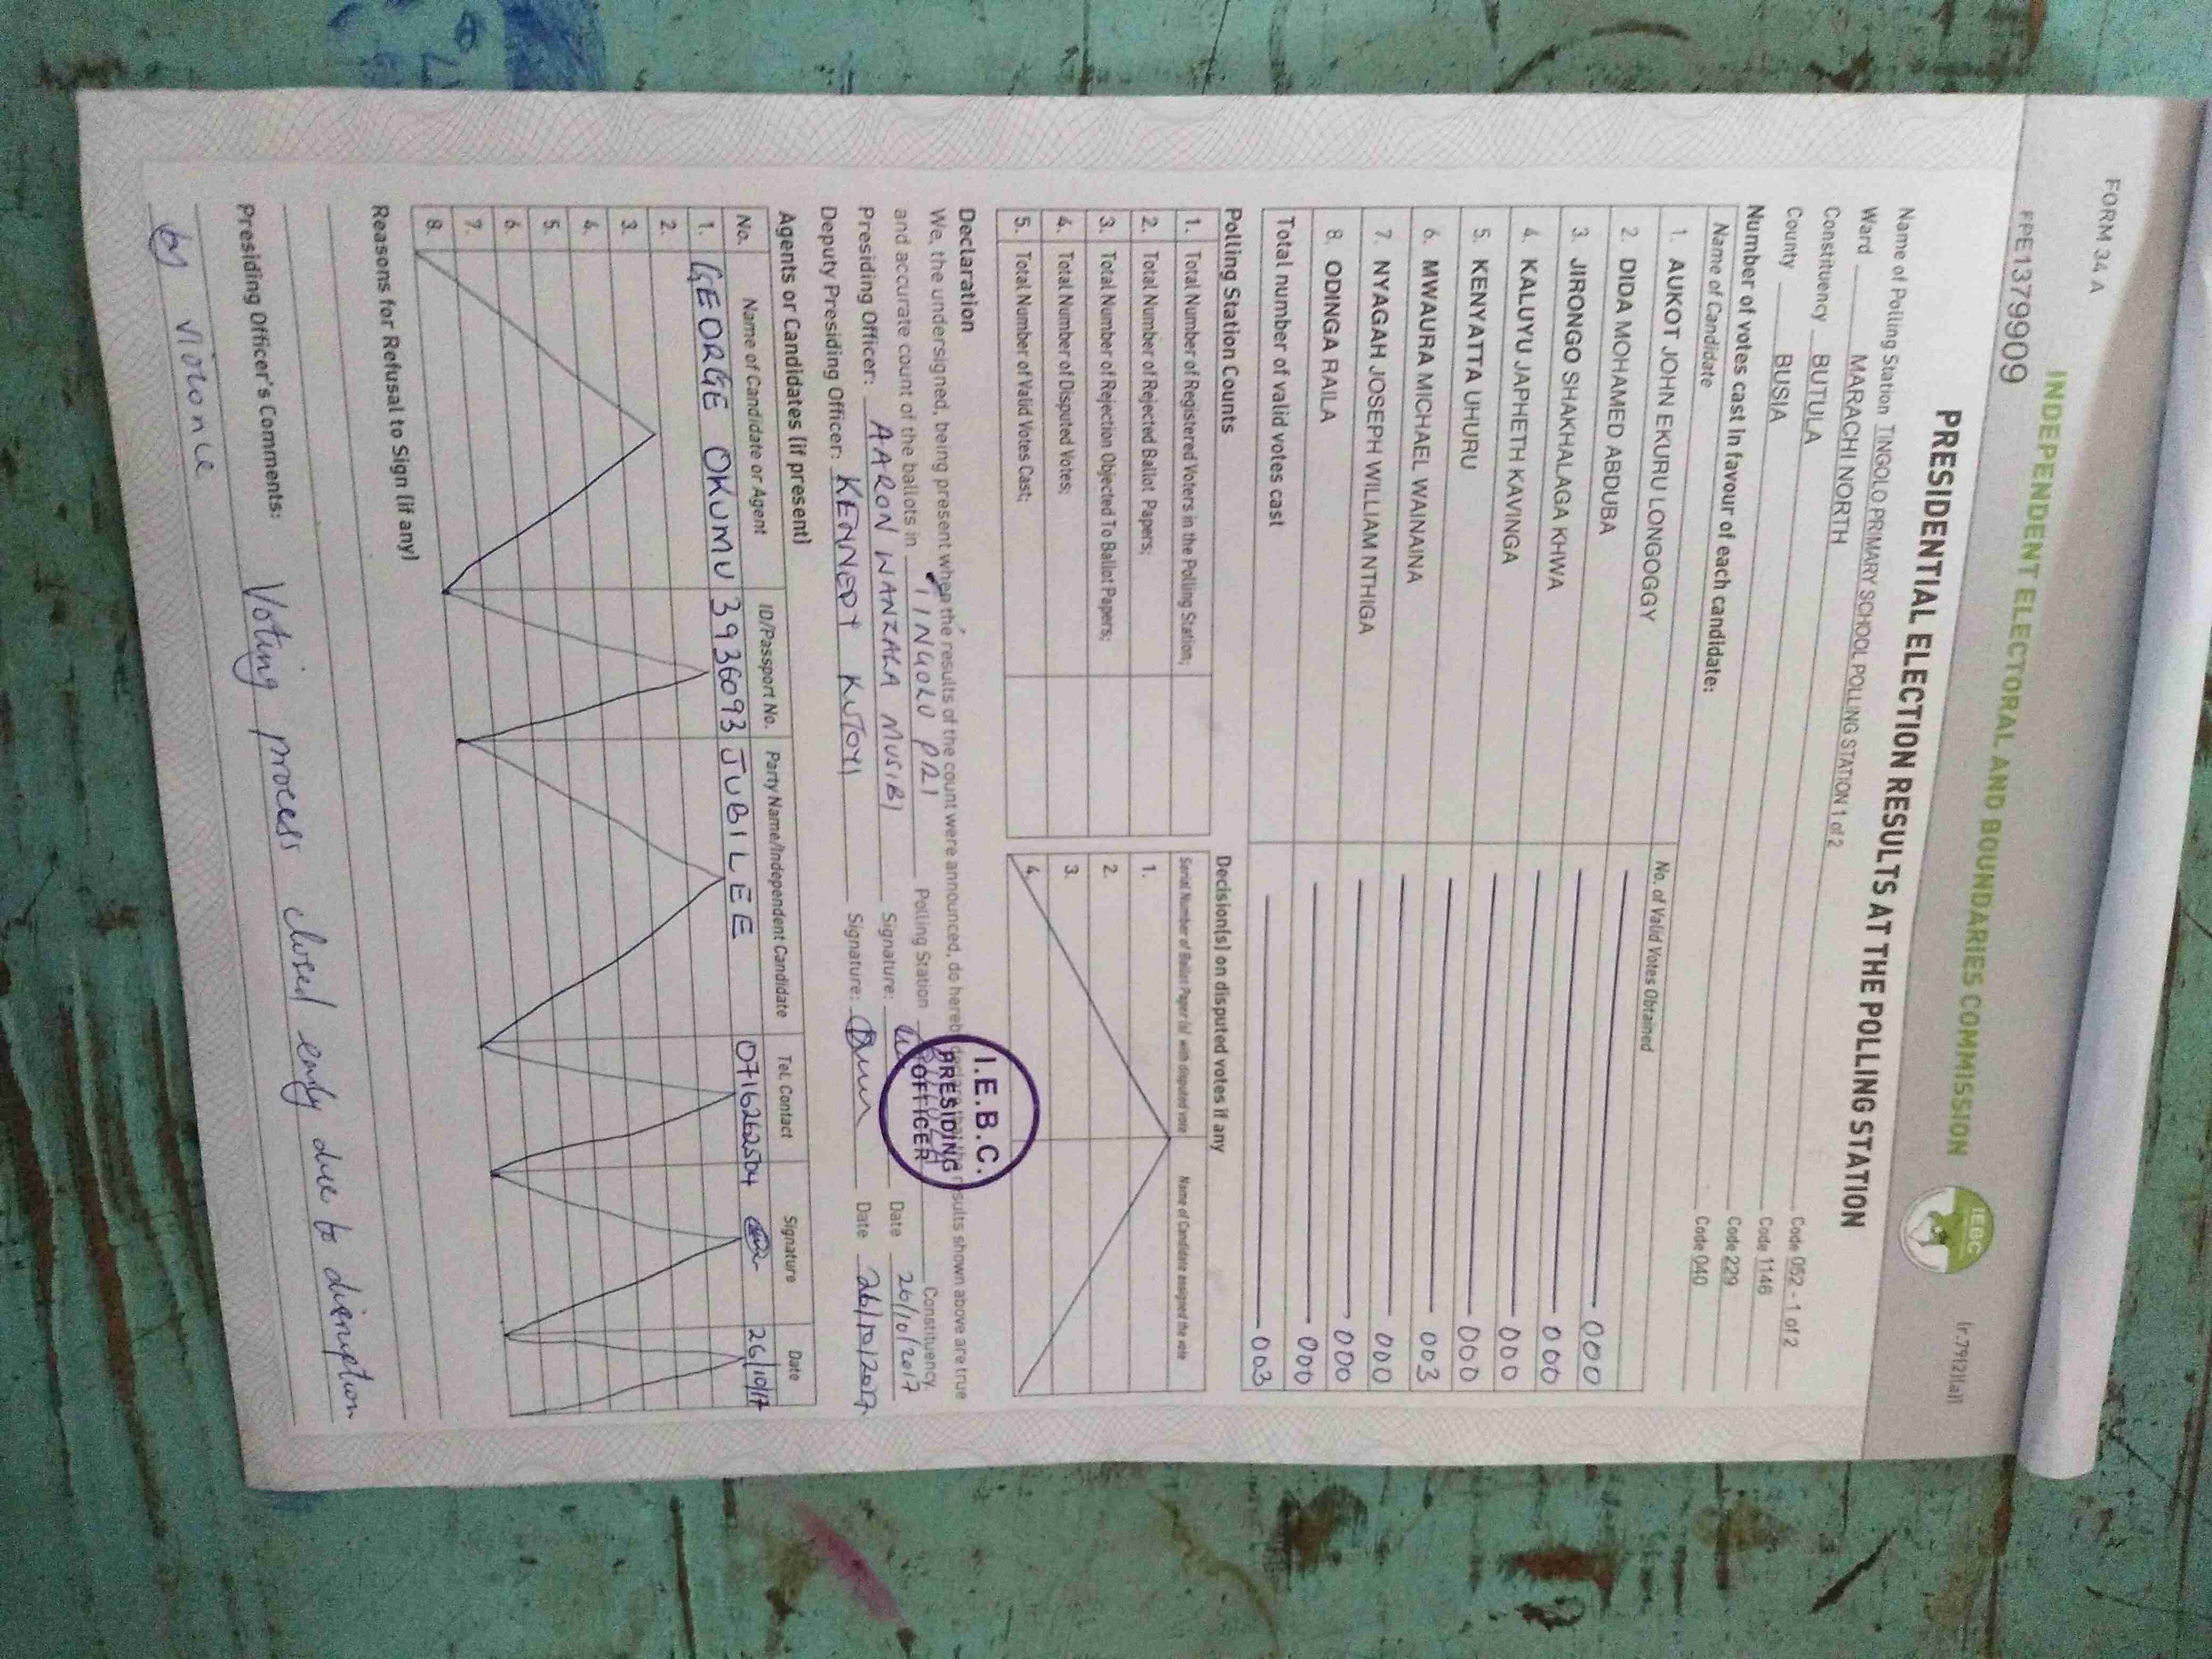 FORM 34 A
(r.79(2)(a))
FPE13799909
INDEPENDENT ELECTORAL AND BOUNDARIES COMMISSION
IEBC
PRESIDENTIAL ELECTION RESULTS AT THE POLLING STATION
Name of Polling Station TINGOLO PRIMARY SCHOOL POLLING STATION 1 of 2 Code 052 - 1 of 2
Ward MARACHI NORTH Code 1146
Constituency BUTULA Code 229
County BUSIA Code 040
Number of votes cast in favour of each candidate:
Name of Candidate No. of Valid Votes Obtained
1. AUKOT JOHN EKURU LONGOGGY 000
2. DIDA MOHAMED ABDUBA 000
3. JIRONGO SHAKHALAGA KHWA 000
4. KALUYU JAPHETH KAVINGA 000
5. KENYATTA UHURU 003
6. MWAURA MICHAEL WAINAINA 000
7. NYAGAH JOSEPH WILLIAM NTHIGA 000
8. ODINGA RAILA 000
Total number of valid votes cast 003
Polling Station Counts
1. Total Number of Registered Voters in the Polling Station;
2. Total Number of Rejected Ballot Papers;
3. Total Number of Rejection Objected To Ballot Papers;
4. Total Number of Disputed Votes;
5. Total Number of Valid Votes Cast;
Decision(s) on disputed votes if any
Serial Number of Ballot Paper (s) with disputed vote Name of Candidate assigned the vote
1.
2.
3.
4.
Declaration
We, the undersigned, being present when the results of the count were announced, do hereby declare that the results shown above are true
and accurate count of the ballots in TINGOLO PRI Polling Station Constituency.
Presiding Officer: AARON WANZALA MUSIBI Signature: Date 26/10/2017
Deputy Presiding Officer: KENNEDY KUTOYI Signature: Date 26/10/2017
I.E.B.C.
PRESIDING
OFFICER
Agents or Candidates (if present)
No. Name of Candidate or Agent ID/Passport No. Party Name/Independent Candidate Tel. Contact Signature Date
1. GEORGE OKUMU 3936093 JUBILEE 0716262504 26/10/17
2.
3.
4.
5.
6.
7.
8.
Reasons for Refusal to Sign (if any)
Presiding Officer's Comments: Voting process closed early due to disruption
by violence